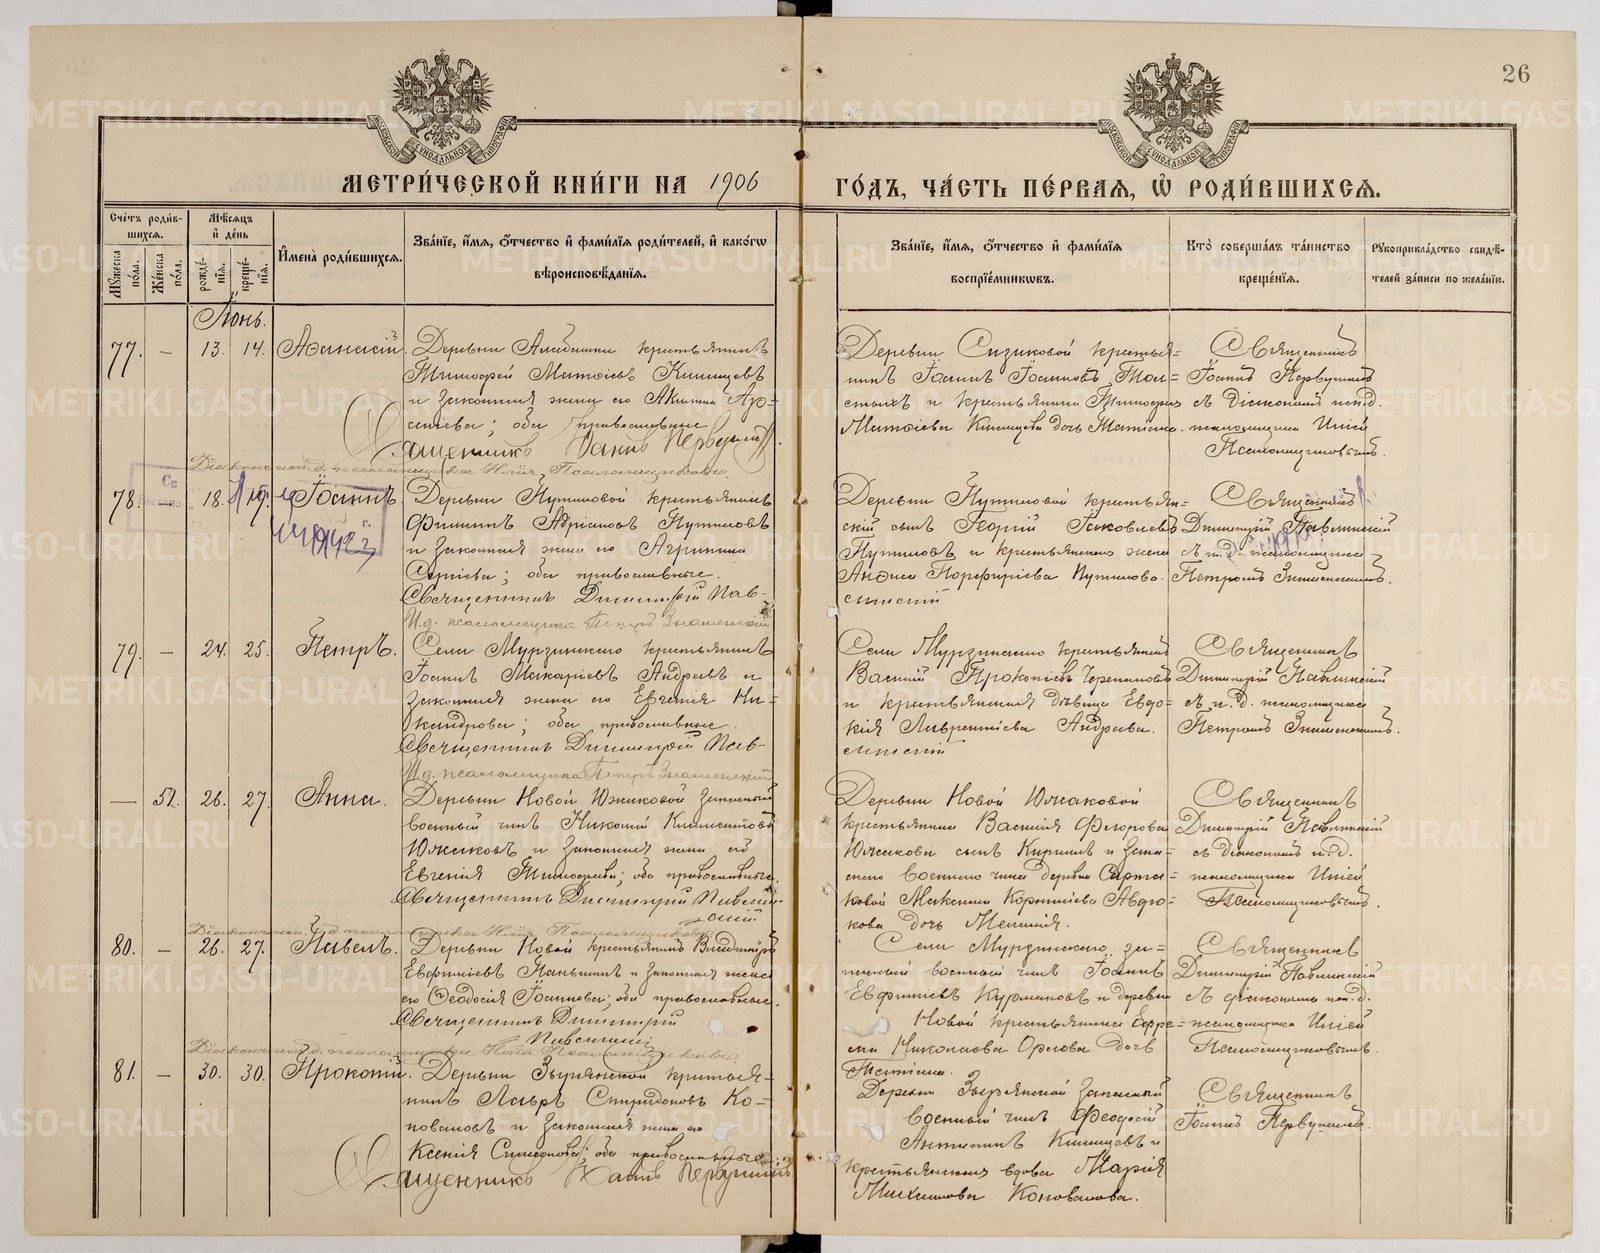 26
МЕТРИ́ЧЕСКОЙ КНИ́ГИ НА 1906 ГО́ДЪ, ЧА́СТЬ ПЕ́РВАЯ, Ѡ҆ РОДИ́ВШИХСЯ.
Сче́тъ роди́вшихся.
Мꙋ́жеска по́ла.
Же́нска по́ла.
Мѣ́сяцъ и҆ де́нь
рожде́нїя.
креще́нїя.
И҆мена̀ роди́вшихся.
Зва́нїе, и҆́мя, ѻ҆́тчество и҆ фами́лїя роди́телей, и҆ како́гѡ вѣроисповѣ́данїя.
Зва́нїе, и҆́мя, ѻ҆́тчество и҆ фами́лїя воспрїе́мниковъ.
Кто̀ соверша́лъ та́инство креще́нїя.
Рꙋкоприкла́дство свидѣ́телей за́писи по жела́нїю.
Іюнь.
77. – 13. 14. Аѳанасій.
Деревни Алабашки крестьянинъ
Тимофей Матѳіевъ Кищевъ
и законная жена его Акилина Ар-
сеніева; оба православные
Священникъ Іоаннъ Первушинъ
Деревни Сизиковой крестья-
нинъ Іоаннъ Іоанновъ Тол-
стыхъ и крестьянина Тимофея
Матѳіева дочь Татіана.
Священникъ
Іоаннъ Первушинъ
съ діакономъ и.д.
псаломщика Иліей
Псаломщиковымъ.
78. – 18. 19. Іоаннъ.
Деревни Путиловой крестьянинъ
Филиппъ Адріановъ Путиловъ
и законная жена его Агрипина
Сергіева; оба православные.
Священникъ Димитрій Пав-
линскій
И.д. псаломщика Петръ Знаменскій
Деревни Путиловой крестьян-
скій сынъ Георгій Іаковлевъ
Путиловъ и крестьянская жена
Анфиса Порфиріева Путилова.
Священникъ
Димитрій Павлинскій
съ и.д. псаломщика
Петромъ Знаменскимъ.
79. – 24. 25. Петръ.
Села Мурзинскаго крестьянинъ
Іоаннъ Макаріевъ Андреевъ и
законная жена его Евгенія Ни-
кандрова; оба православные.
Священникъ Димитрій Пав-
линскій
И.д. псаломщика Петръ Знаменскій
Села Мурзинскаго крестьянинъ
Василій Прокопіевъ Черепановъ
и крестьянская дѣвица Евдо-
кія Лаврентіева Андреева.
Священникъ
Димитрій Павлинскій
съ и.д. псаломщика
Петромъ Знаменскимъ.
– 51. 26. 27. Анна.
Деревни Новой Южаковой запасный
военный чинъ Никонъ Климентовъ
Южаковъ и законная жена его
Евгенія Тимофеева; оба православные.
Священникъ Димитрій Павлин-
скій
Деревни Новой Южаковой
крестьянина Василія Флорова
Южакова сынъ Кириллъ и запа-
снаго военнаго чина деревни
Авдю-
кова дочь
Священникъ
Димитрій Павлинскій
съ діакономъ и.д.
псаломщика Иліей
Псаломщиковымъ.
80. – 26. 27. Павелъ.
Деревни Новой крестьянинъ Владиміръ
Евфиміевъ Паньшинъ и законная жена
его Ѳеодосія Іоаннова; оба православные.
Священникъ Димитрій
Павлинскій
Села Мурзинскаго за-
пасный военный чинъ Іоаннъ
Евфиміевъ Курмановъ и деревни
Новой крестьянина Ефре-
ма Николаева Орлова дочь
Татіана.
Священникъ
Димитрій Павлинскій
съ діакономъ и.д.
псаломщика Иліей
Псаломщиковымъ.
81. – 30. 30. Прокопій.
Деревни Зырянской крестья-
нинъ Лавръ Спиридоновъ Ко-
новаловъ и законная жена его
Ксенія Симеонова; оба православные.
Священникъ Іоаннъ Первушинъ
Деревни Зырянской запасный
военный чинъ Ѳеодосій
Антипинъ Кищевъ и
крестьянская вдова Марія
Михаилова Коновалова.
Священникъ
Іоаннъ Первушинъ.
METRIKI.GASO-URAL.RU